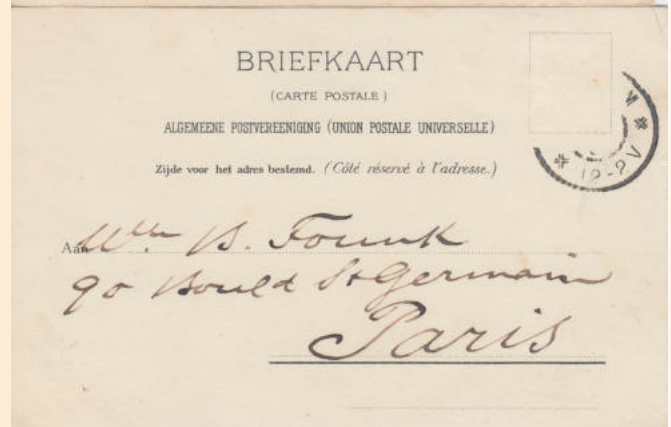 BRIEFKAART
(CARTE POSTALE)
ALGEMEENE POSTVEREENIGING (UNION POSTALE UNIVERSELLE)
Zijde voor het adres bestemd. (Côté réservé à l'adresse.)
12-2V
Aan B.
90 Bould St Germain
Paris